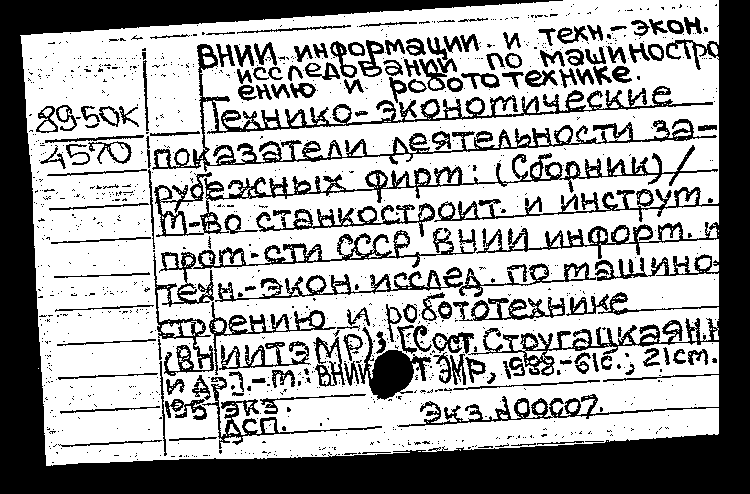 ВНИИ информации и техн.-экон.
исследований по машиностро
ению и робототехнике.
89-50К Технико-экономические
4570 показатели деятельности за-
рубежных фирм: (Сборник) /
М-во станкостроит. и инструм.
пром-сти СССР, ВНИИ информ. и
техн.-экон. исслед. по машино-
строению и робототехнике
(ВНИИТЭМР); [Сост. Стругацкая Н.Н
и др.]. - М.: ВНИИТЭМР, 1988.-61с.; 21см.
195 экз.
ДСП. Экз. №00007.